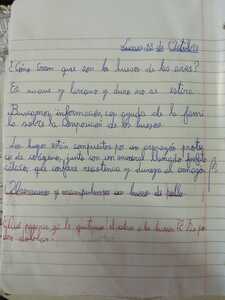 Lunes 23 de Octubre
¿Cómo creen que son los huesos de las aves?
Es suave y liviano y duro no se estira
Buscamos información con ayuda de la fami
lia sobre la composición de los huesos.
Los huesos están compuestos por un armazón protei
co de colágeno, junto con un mineral llamado fosfato
cálcico, que confiere resistencia y dureza al armazón
Observamos y manipulamos un hueso de pollo
¿Qué pasaría si le quitamos el calcio a los huesos? R: Se po
drían doblar.